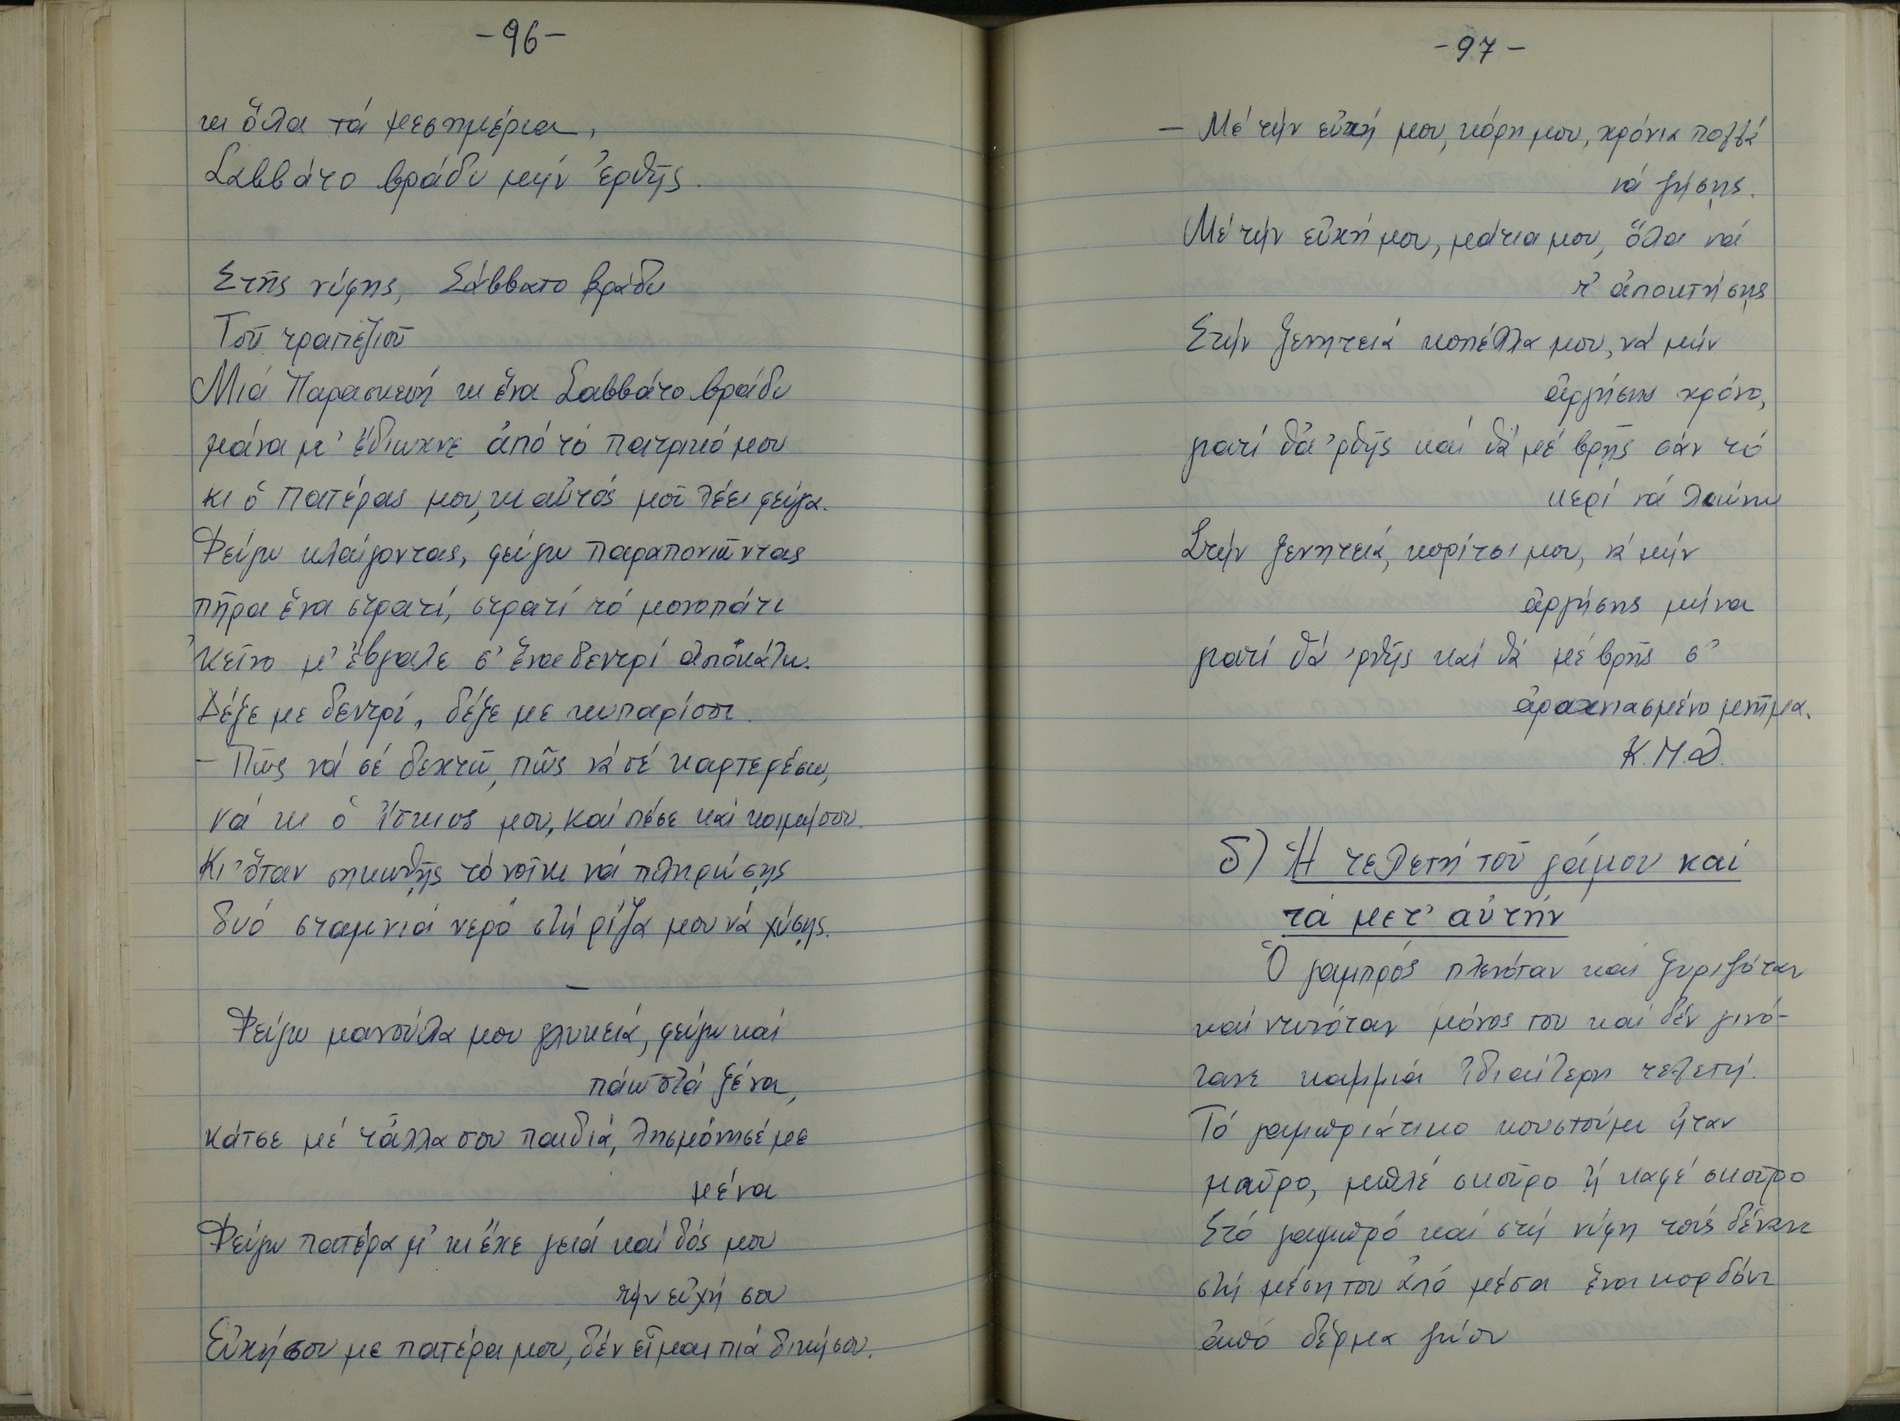 -96-
κι ὅλα τά μεσημέρια,
Σαββάτο βράδυ μήν ἐρθῆς.
Στῆς νύφης, Σάββατο βράδυ
Τοῦ τραπεζιοῦ
Μιά Παρασκευή κι ἕνα Σαββάτο βράδυ
μάνα μ' ἔδιωχνε ἀπό τό πατρικό μου
κι ὁ πατέρας μου, κι αὐτός μοῦ λέει φεύγα.
Φεύγω κλαίγοντας, φεύγω παραπονιῶντας
πῆρα ἕνα στρατί, στρατί τό μονοπάτι
'κεῖνο μ' ἔβγαλε σ' ἕνα δεντρί ἀποκάτω.
Δέξε με δεντρί, δέξε με κυπαρίσσι.
- Πῶς νά σέ δεχτῶ, πῶς νά σέ καρτερέσω,
νά κι ὁ ἴσκιος μου, καί πέσε καί κοιμήσου.
Κι' ὅταν σηκωθῆς τό νοίκι νά πληρώσης
δυό σταμνιά νερό στή ρίζα μου νά χύσης.
—
Φεύγω μανούλα μου γλυκειά, φεύγω καί
πάω στά ξένα,
κάτσε μέ τἄλλα σου παιδιά, λησμόνησέ με
μένα
Φεύγω πατέρα μ' κι ἔχε γειά καί δός μου
τήν εὐχή σου
Εὐχήσου με πατέρα μου, δέν εἶμαι πιά δική σου.
-97-
- Μέ τήν εὐχή μου, κόρη μου, χρόνια πολλά
νά ζήσης.
Μέ τήν εὐχή μου, μάτια μου, ὅλα νά
τ' ἀποκτήσης
Στήν ξενητειά κοπέλλα μου, νά μήν
ἀργήσης χρόνο,
γιατί θά 'ρθῆς καί θά μέ βρῆς σάν τό
κερί νά λυώνω
Στήν ξενητειά, κορίτσι μου, νά μήν
ἀργήσης μήνα
γιατί θά 'ρθῆς καί θά μέ βρῆς σ'
ἀραχνιασμένο μνῆμα.
Κ.Μ.Δ.
δ) Ἡ τελετή τοῦ γάμου καί
τά μετ' αὐτήν
Ὁ γαμπρός πλενόταν καί ξυριζόταν
καί ντυνόταν μόνος του καί δέν γινό-
τανε καμμιά ἰδιαίτερη τελετή.
Τό γαμπριάτικο κουστούμι ἦταν
μαῦρο, μπλέ σκοῦρο ἤ καφέ σκοῦρο
Στό γαμπρό καί στή νύφη τούς δένανε
στή μέση του ἀπό μέσα ἕνα κορδόνι
ἀπό δέρμα ζώου